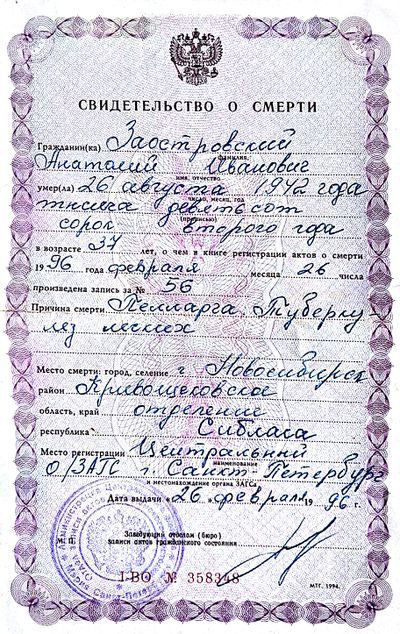 СВИДЕТЕЛЬСТВО О СМЕРТИ
Гражданин(ка) Заостровский
фамилия,
Анатолий Иванович
имя, отчество
умер(ла) 26 августа 1942 года
число, месяц, год
тысяча девятьсот
(прописью)
сорок второго года
в возрасте 37 лет, о чем в книге регистрации актов о смерти
1996 года февраля месяца 26 числа
произведена запись за № 56
Причина смерти Пеллагра. Туберку-
лез легких
Место смерти: город, селение г. Новосибирск
район Кривощековское
область, край отделение
республика Сиблага
Место регистрации Центральный
наименование
О/ЗАГС г. Санкт-Петербург
и местонахождение органа ЗАГСа
Дата выдачи «26 февраля 1996 г.
М.П.
Заведующий отделом (бюро)
записи актов гражданского состояния
I-ВО № 358348
МТГ. 1994.